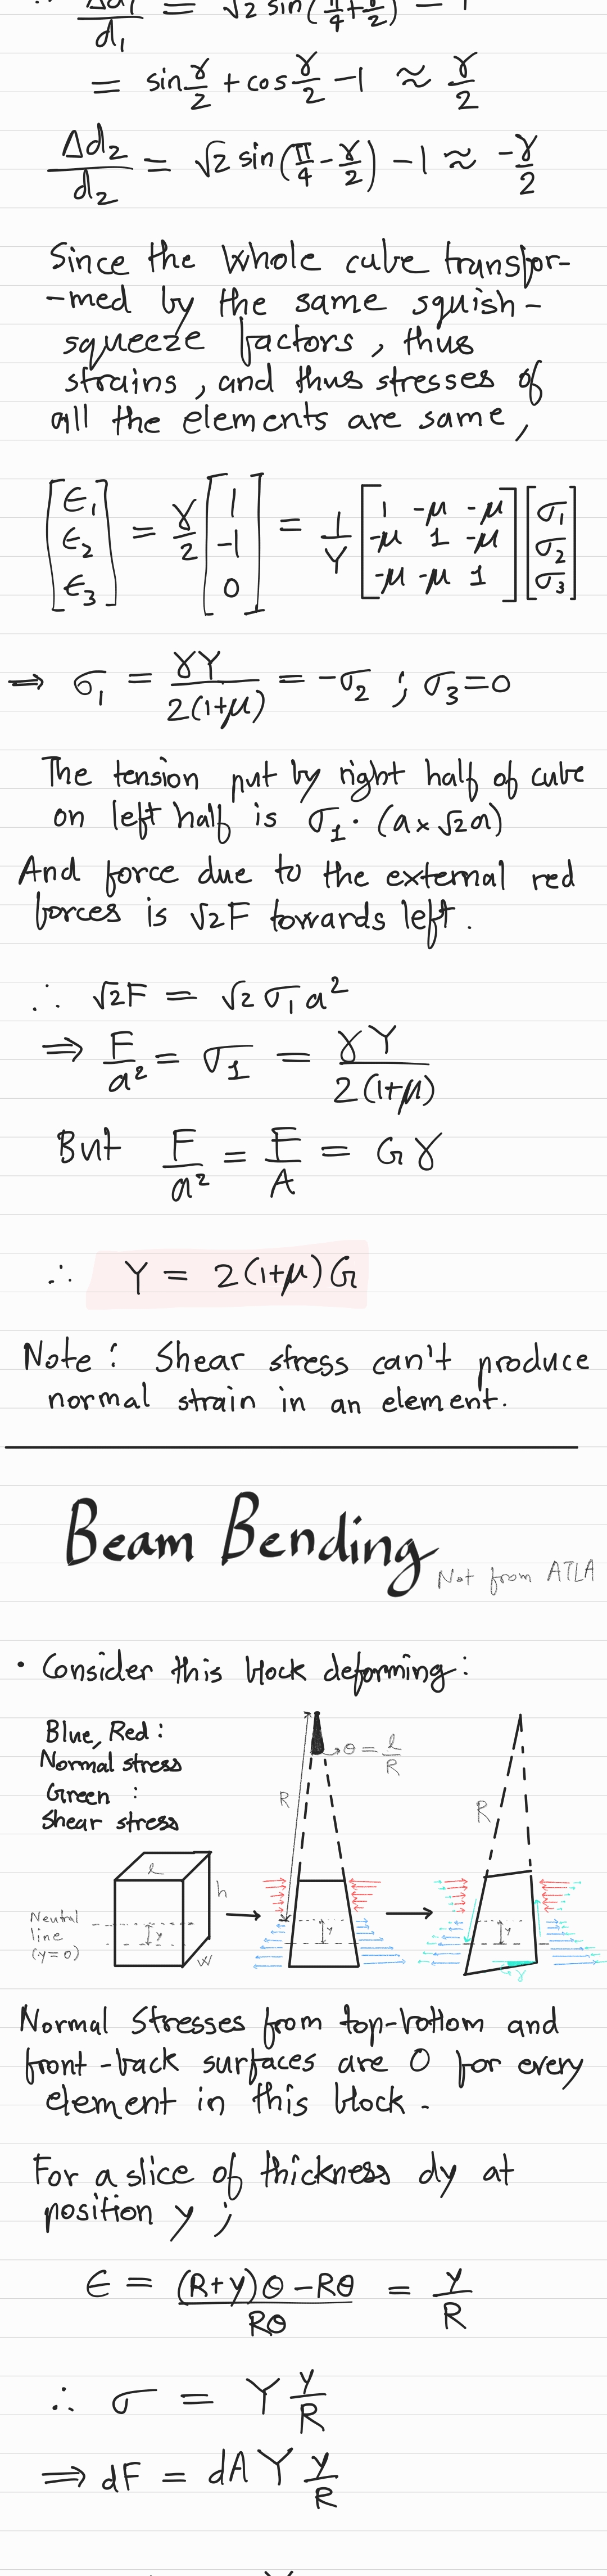 ∴ Δd₁/d₁ = √2 sin(π/4 + γ/2) − 1
= sin γ/2 + cos γ/2 − 1 ≈ γ/2
Δd₂/d₂ = √2 sin(π/4 − γ/2) − 1 ≈ −γ/2
Since the whole cube transfor-
-med by the same squish-
squeeze factors, thus
strains, and thus stresses of
all the elements are same,
[ϵ₁ ϵ₂ ϵ₃] = γ/2 [1 −1 0] = 1/Y [1 −μ −μ; −μ 1 −μ; −μ −μ 1] [σ₁ σ₂ σ₃]
⇒ σ₁ = γY/2(1+μ) = −σ₂ ; σ₃ = 0
The tension put by right half of cube
on left half is σ₁ · (a × √2a)
And force due to the external red
forces is √2F towards left.
∴ √2F = √2 σ₁ a²
⇒ F/a² = σ₁ = γY/2(1+μ)
But F/a² = F/A = Gγ
∴ Y = 2(1+μ)G
Note: Shear stress can't produce
normal strain in an element.
Beam Bending
Not from ATLA
• Consider this block deforming:
Blue, Red:
Normal stress
Green:
Shear stress
θ = l/R
R
R
l
h
w
Neutral
line
(y=0)
y
y
y
γ
Normal Stresses from top-bottom and
front-back surfaces are 0 for every
element in this block.
For a slice of thickness dy at
position y ;
ϵ = (R+y)θ − Rθ/Rθ = y/R
∴ σ = Y y/R
⇒ dF = dA Y y/R